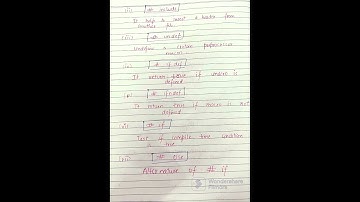 (ii) # include
It help to insert a header from
another file.
(iii) # undef
Undefine a certain preprocessor
macro
(iv) # if def
It return true if macro is
defined
(v) # ifndef
It return true if macro is not
defined
(vi) # if
Test if compile time condition
is true
(vii) # else
Alternative of # if
Wondershare
Filmora